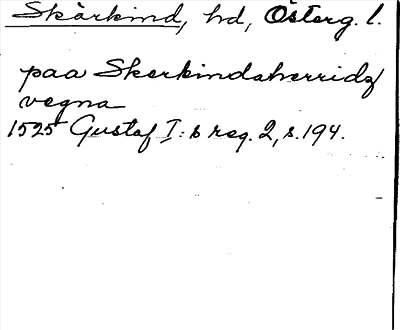 Skärkind, hd, Österg. l.
paa Skerkindaherridz
vegna
1525 Gustaf I:s reg. 2, s. 194.